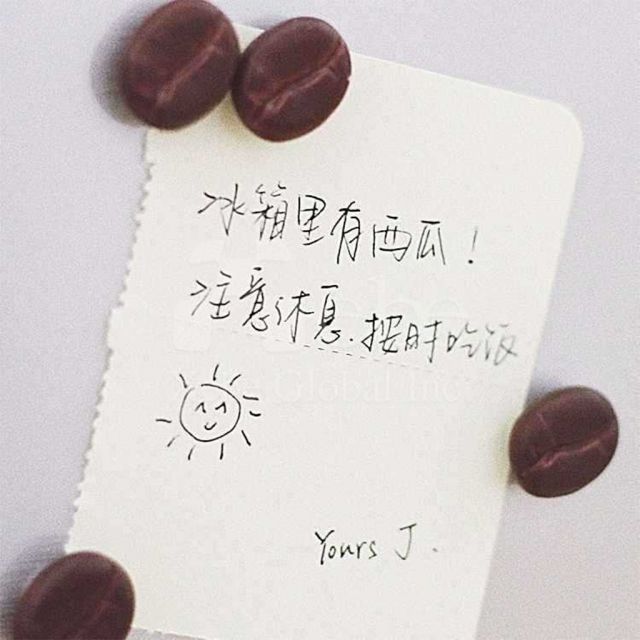 冰箱里有西瓜!
注意休息.按时吃饭
Yours J.